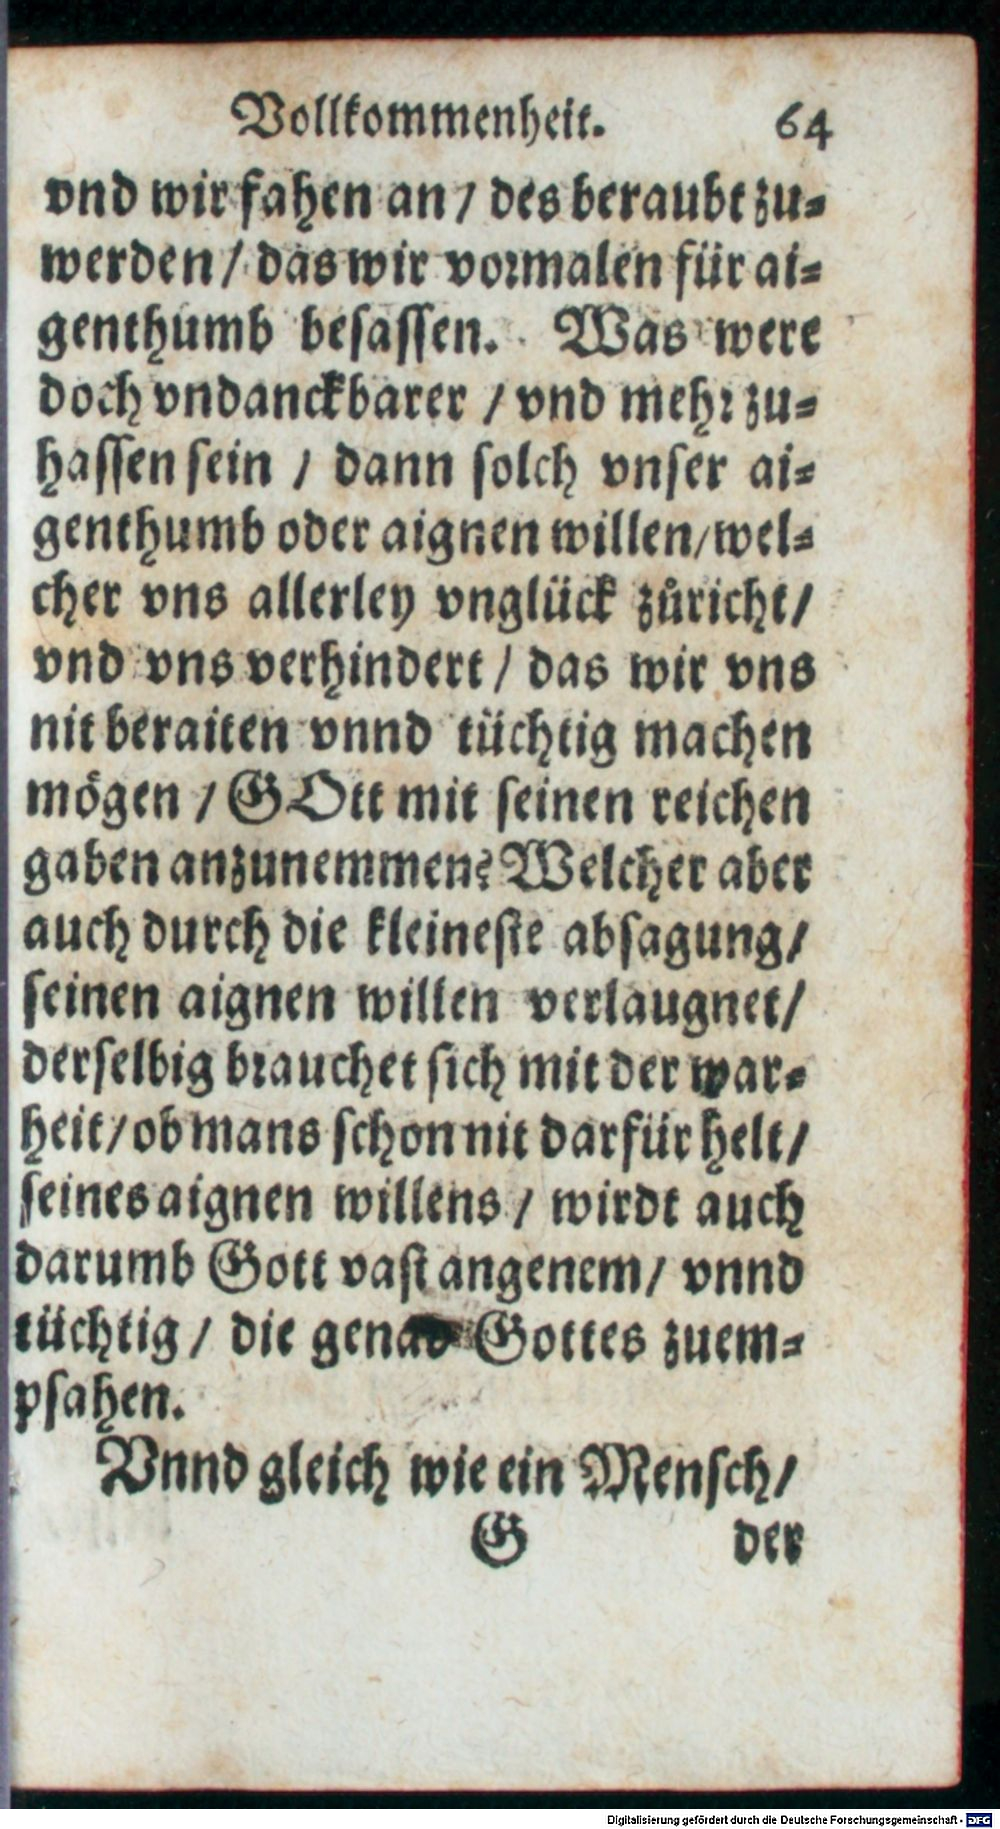 Vollkommenheit. 64
vnd wir fahen an / des beraubt zu⸗
werden / das wir vormalen für ai⸗
genthumb besassen. Was were
doch vndanckbarer / vnd mehr zu⸗
hassen sein / dann solch vnser ai⸗
genthumb oder aignen willen/wel⸗
cher vns allerley vnglück zůricht/
vnd vns verhindert / das wir vns
nit beraiten vnnd tüchtig machen
mögen / GOtt mit seinen reichen
gaben anzunemmen? Welcher aber
auch durch die kleineste absagung/
seinen aignen willen verlaugnet/
derselbig brauchet sich mit der war⸗
heit/ob mans schon nit darfür helt/
seines aignen willens / wirdt auch
darumb Gott vast angenem/ vnnd
tüchtig / die genad Gottes zuem⸗
pfahen.
Vnnd gleich wie ein Mensch/
G der
Digitalisierung gefördert durch die Deutsche Forschungsgemeinschaft - DFG